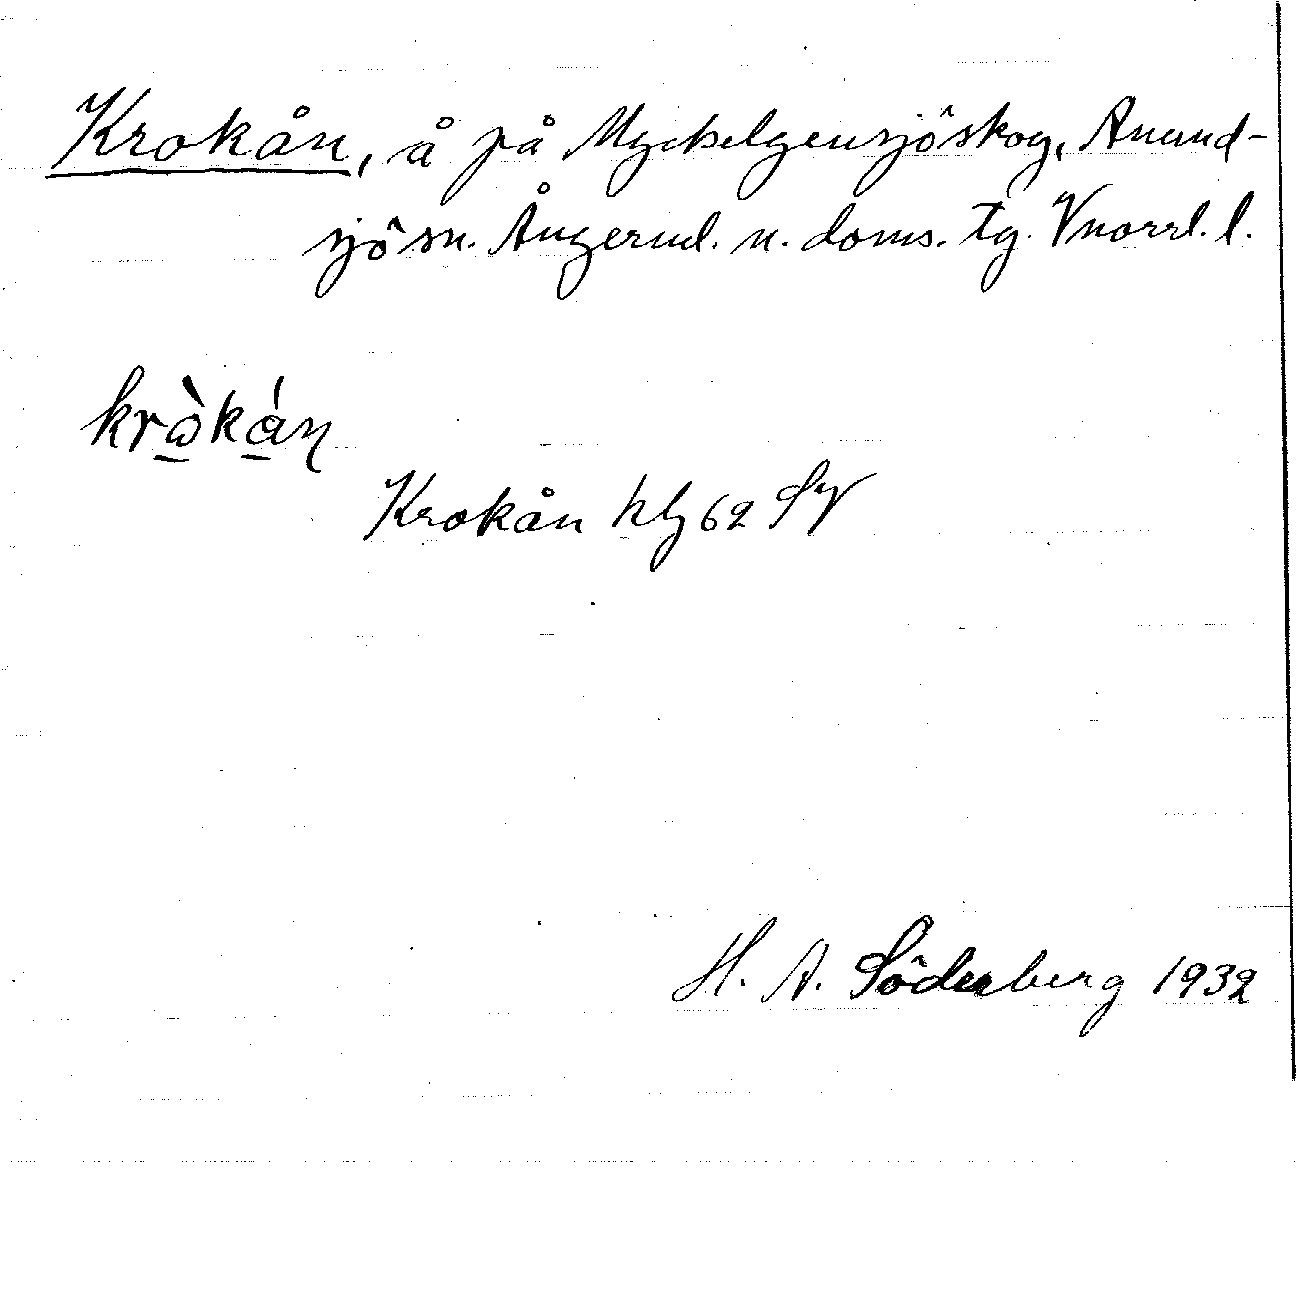 Krokån, å på Myckelgensjöskog, Anund-
sjö sn. Ångerml. n. doms. tg. Vnorrl. l.
kròkán
Krokån hlg 62 Sy
H. A. Söderberg 1932